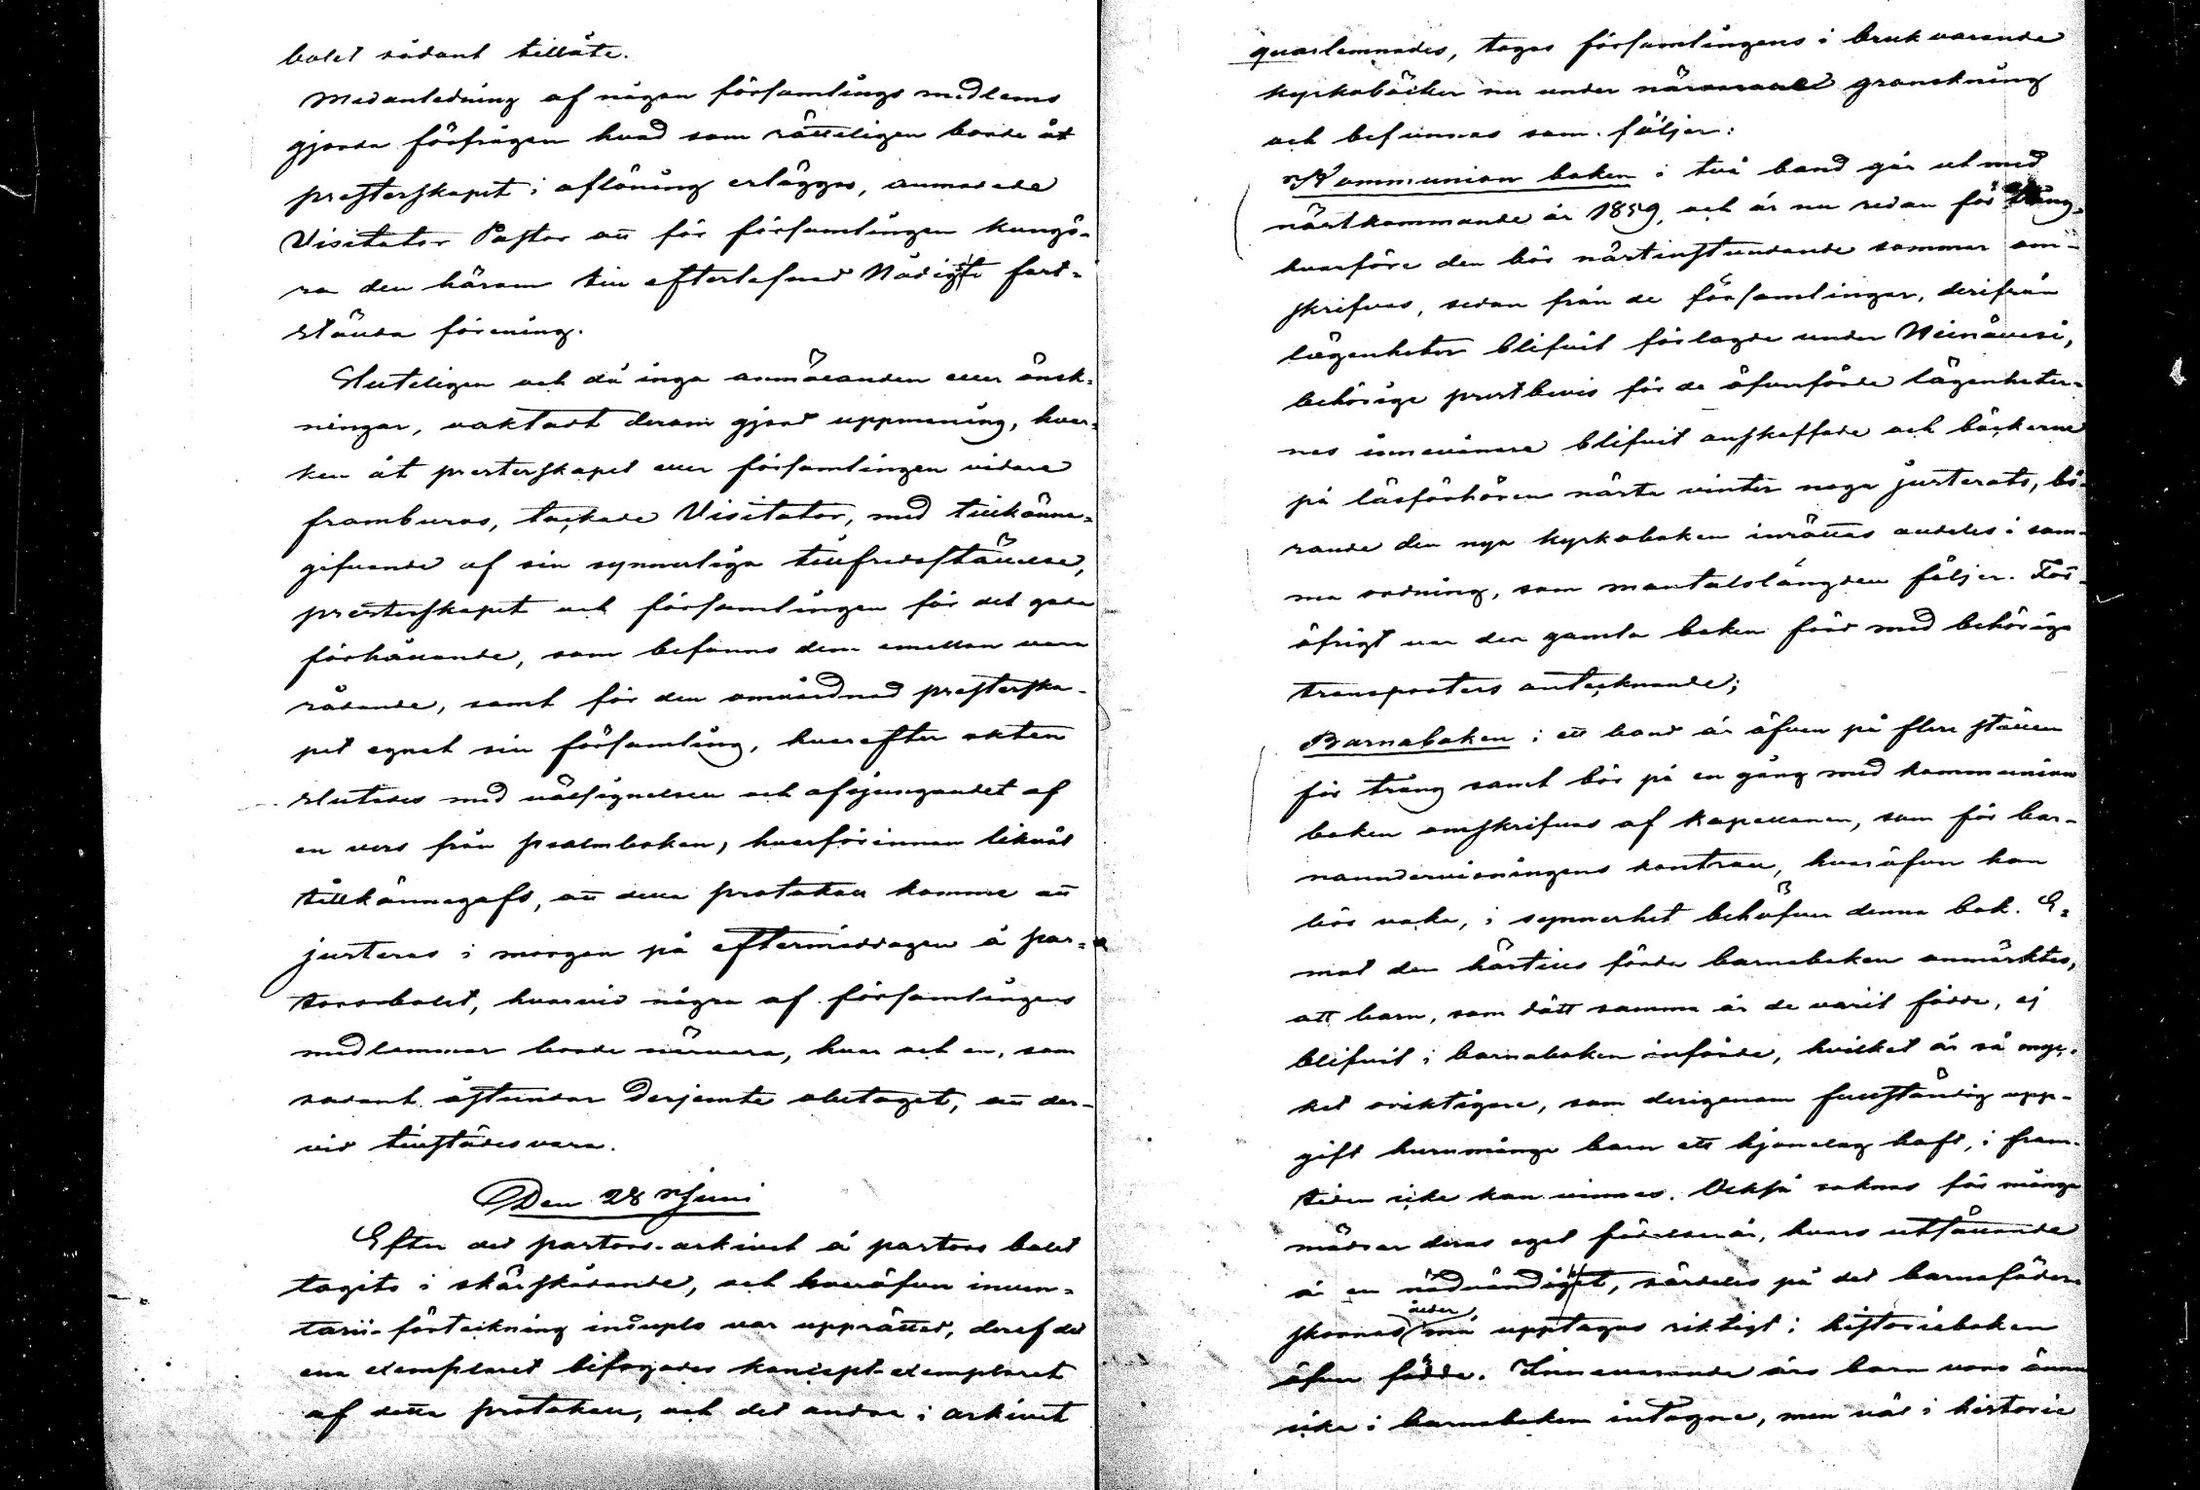 bolet sådant tilläte.
Medanledning af någon församlings medlems
gjorda förfrågan hvad som rätteligen borde åt
presterskapet i aflöning erläggas, anmodade
Visitator Pastor att för församlingen kungö-
ra den härom till efterlefnad Nådigst fast-
stälda förening.
Sluteligen och då inga anmälanden eller önsk-
ningar, oaktadt derom gjord uppmaning, hvar-
ken åt presterskapet eller församlingen vidare
framburos, tackade Visitator, med tillkänna-
gifvande af sin synnerliga tillfredsställelse,
presterskapet och församlingen för det goda
förhållande, som befanns dem emellan vara
rådande, samt för den omvårdnad presterska-
pet egnat sin församling, hvarefter akten
slutades med välsignelsen och afsjungandet af
en vers från psalmboken, hvarförinnan likväl
tillkännagafs, att detta protokoll komme att
justeras i morgon på eftermiddagen å pas-
torsbolet, hvarvid några af församlingens
medlemmar borde närvara, hvar och en, som
sådant åstundar derjemte obetaget, att der-
vid tillstädesvara.
Den 28 Juni
Efter det pastors-arkivet å pastors bolet
tagits i skärskådande, och deröfver inven-
tarii-förteckning in duplo var upprättad, deraf det
ena exemplaret bifogades koncept-exemplaret
af detta protokoll, och det andra i arkivet
quarlemnades, togos församlingens i bruk varande
kyrkoböcker nu under närmare granskning
och befunnos som följer:
Kommunion boken i två band går ut med
nästkommande år 1859, och är nu redan för trång,
hvarföre den bör nästinstundande sommar om-
skrifvas, sedan från de församlingar, derifrån
lägenheter blifvit förlagde under Heinävesi,
behörige prestbevis för de öfverförde lägenheter-
nas innevånare blifvit anskaffade och böckerne
på läsförhören nästa vinter noga justerats, bö-
rande den nya kyrkoboken inrättas aldeles i sam-
ma ordning, som mantalslängden följer. För
öfrigt var den gamla boken förd med behöriga
transporters antecknande;
Barnaboken i ett band är äfven på flere ställen
för trång samt bör på en gång med kommunion
boken omskrifvas af kapellanen, som för bar-
naundervisningens kontroll, hvaröfver han
bör vaka, i synnerhet behöfver denna bok. E-
mot den härtills förda barnaboken anmärktes,
att barn, som dött samma år de varit födde, ej
blifvit i barnaboken införde, hvilket är så myc-
ket oriktigare, som derigenom fullständig upp-
gift huru många barn ett hjonelag haft, i fram-
tiden icke kan vinnas. Också saknas för många
mödrar deras eget födelseår, hvars utsättande
är en nödvändighet, särdeles på det barnaföder-
skornas ålder må upptagas riktigt i historieboken
öfver födde. Innevarande års barn voro ännu
icke i barnaboken intagne, men väl i historie